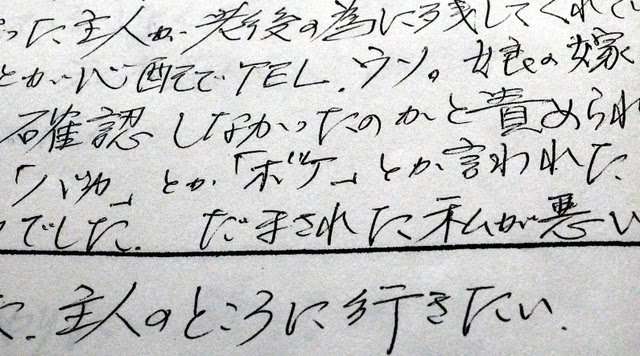 った主人が老後の為に残してくれてい
とが心配でTEL.ウソ。娘の嫁
確認しなかったのかと責められ
「バカ」とか「ボケ」とか言われた
でした.だまされた私が悪い
た.主人のところに行きたい.